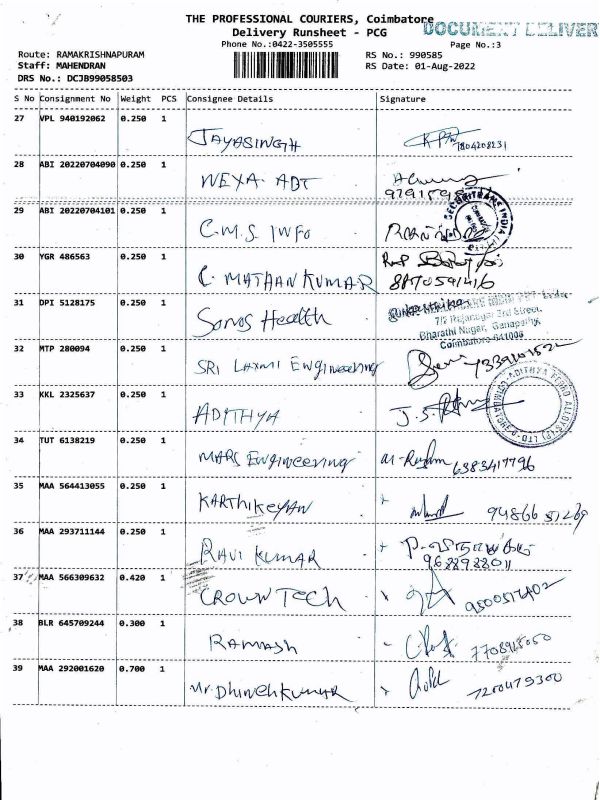 THE PROFESSIONAL COURIERS, Coimbatore
DOCUMENT DELIVER
Delivery Runsheet - PCG
Phone No.:0422-3505555
Page No.:3
Route: RAMAKRISHNAPURAM
RS No.: 990585
Staff: MAHENDRAN
RS Date: 01-Aug-2022
DRS No.: DCJB99058503
S No Consignment No Weight PCS Consignee Details Signature
27 VPL 940192062 0.250 1
JAYASINGH
28 ABI 20220704090 0.250 1
WEXA ADT
29 ABI 20220704101 0.250 1
C.M.S INFO
SECURITRANS INDIA
30 YGR 486563 0.250 1
C. MATHAN KUMAR
31 DPI 5128175 0.250 1
Sonos Health
7/2 Rajanagar 3rd Street,
Bharathi Nagar, Ganapathy,
Coimbatore-641006
32 MTP 280094 0.250 1
SRI LAXMI Engineering
33 KKL 2325637 0.250 1
ADITHYA
J.S.
ADITHYA FERRO ALLOYS (P) LTD
34 TUT 6138219 0.250 1
MARS Engineering
6383417796
35 MAA 564413055 0.250 1
KARTHIKEYAN
36 MAA 293711144 0.250 1
RAVI KUMAR
9688988011
37 MAA 566309632 0.420 1
CROWN TECH
38 BLR 645709244 0.300 1
RAMASH
39 MAA 292001620 0.700 1
Mr. Dhineshkumar
7200479300